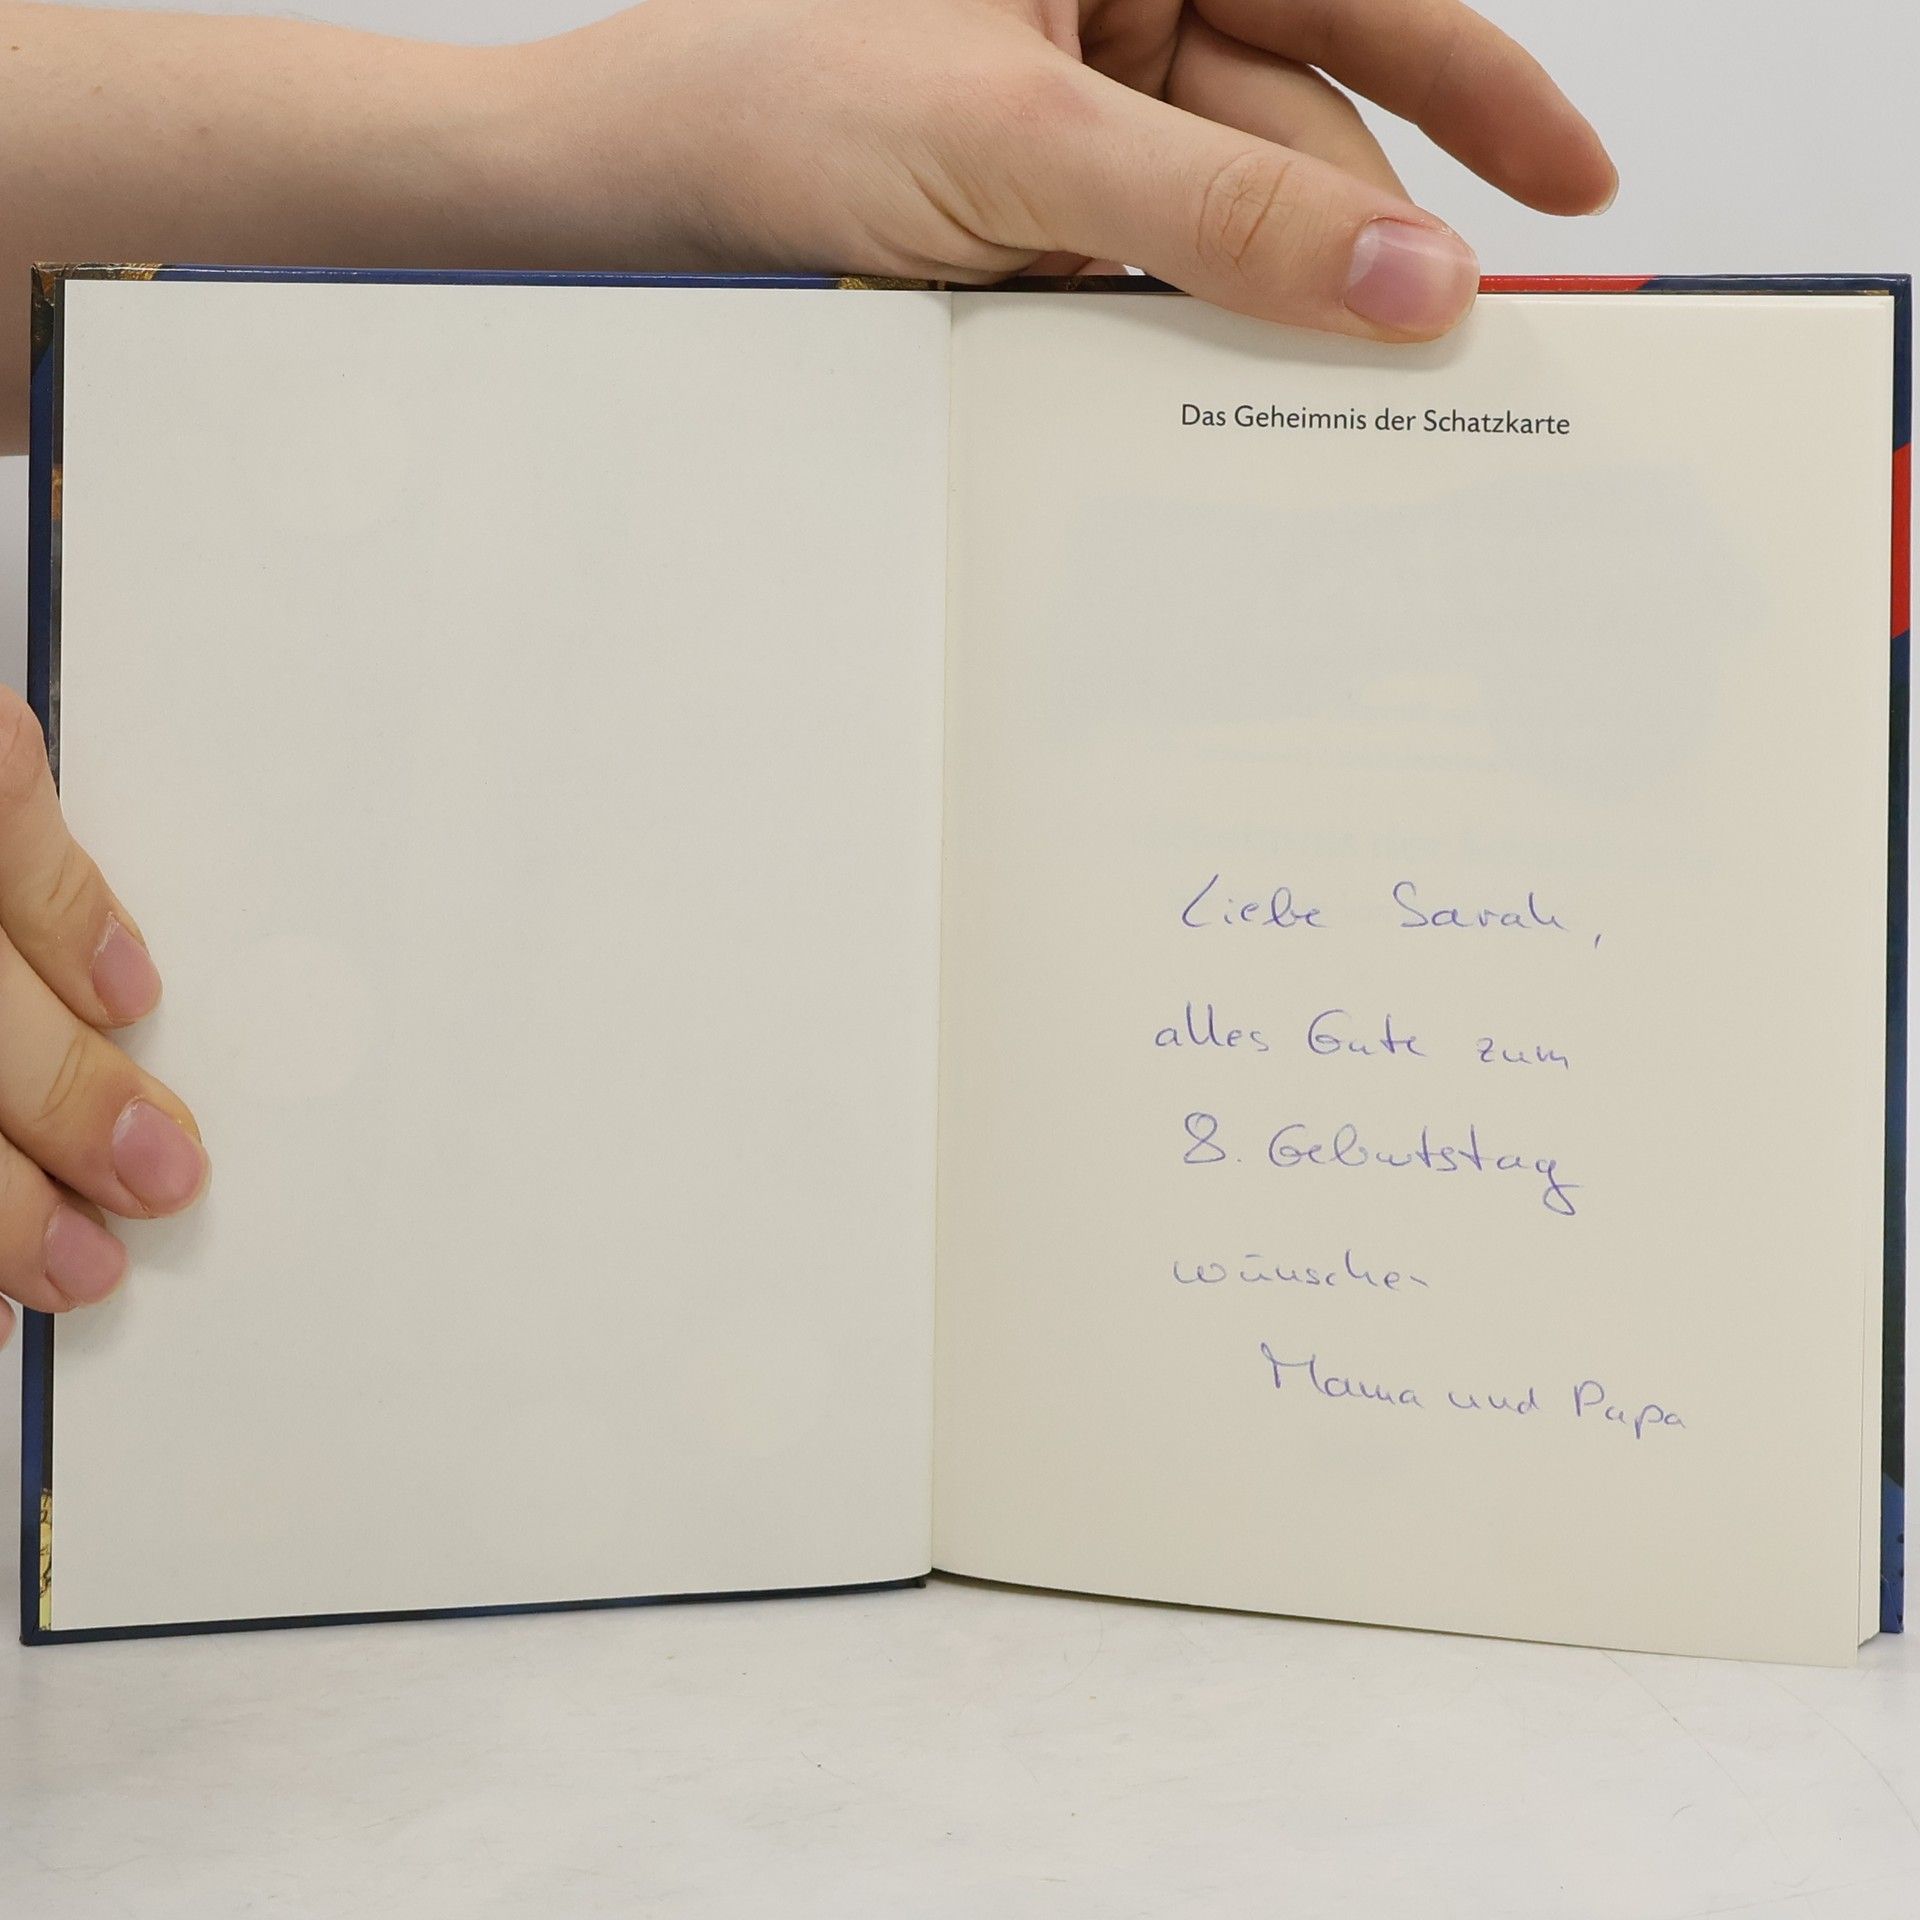 Das Geheimnis der Schatzkarte
Liebe Sarah,
alles Gute zum
8. Geburtstag
wünschen
Mama und Papa